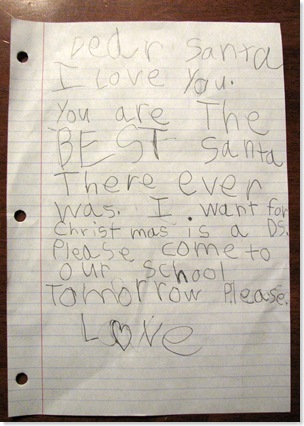 Dear Santa
I Love You.
You are The
BEST Santa
There ever
was. I want for
christmas is a DS.
Please come to
our school
Tomorrow Please.
LOVE